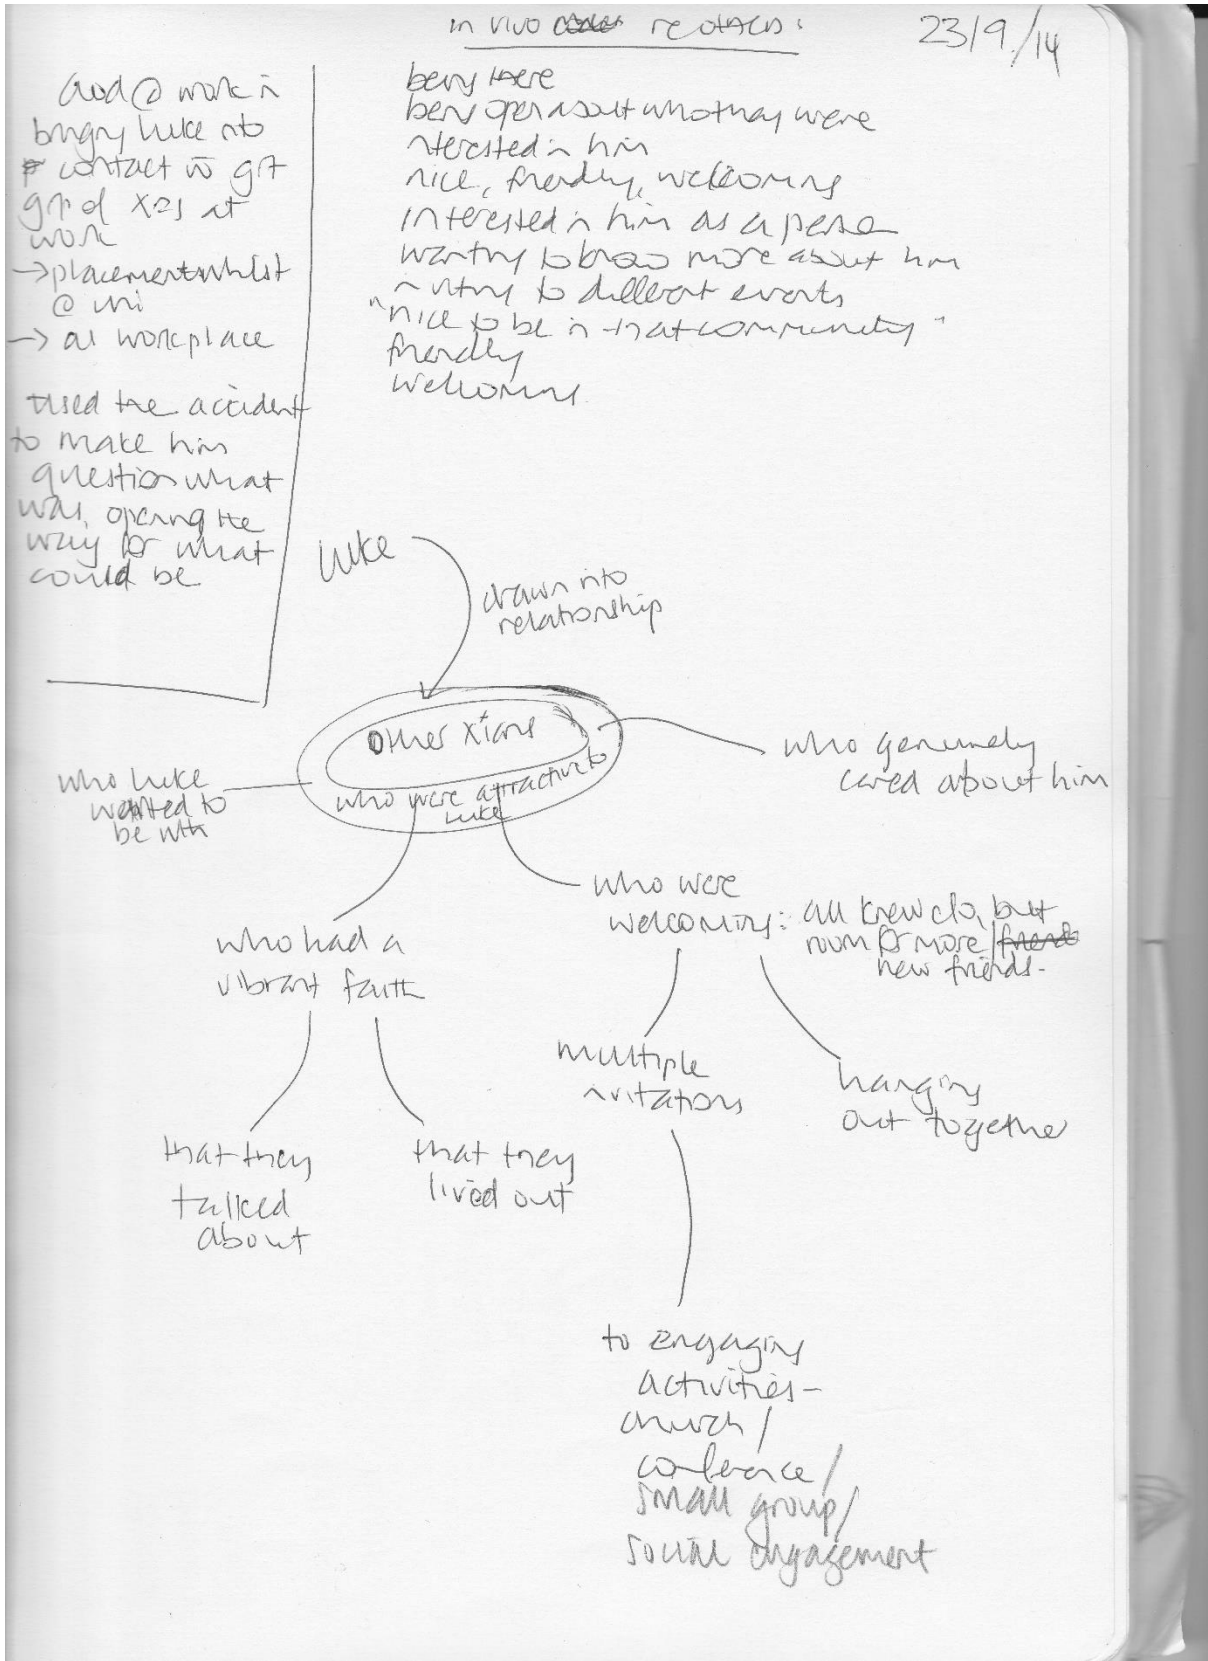 in vivo re others:
23/9/14
God @ work in
bringing Luke into
contact w
at
work
→ placement whilst
@ uni
→ at workplace
used the accident
to make him
question what
was, opening the
way for what
could be
being there
being open about who they were
interested in him
nice, friendly, welcoming
interested in him as a person
wanting to know more about him
inviting to different events
"nice to be in that community"
friendly
welcoming
Luke
drawn into
relationship
Other Xians
who were attractive to
Luke
who genuinely
cared about him
who Luke
wanted to
be with
who were
welcoming: all knew e/o, but
room for more /friends
new friends-
who had a
vibrant faith
multiple
invitations
hanging
out together
that they
talked
about
that they
lived out
to engaging
activities-
church/
conference/
small group/
social engagement